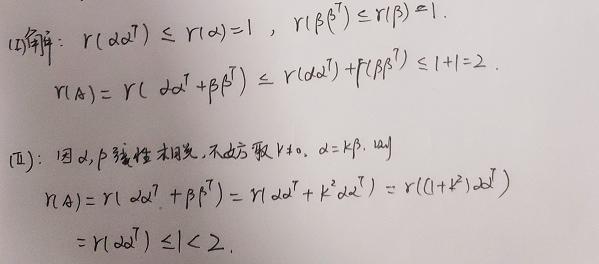 (I)解: r(αα^T) ≤ r(α)=1, r(ββ^T) ≤ r(β)=1.
r(A) = r(αα^T+ββ^T) ≤ r(αα^T)+r(ββ^T) ≤ 1+1=2.
(II): 因α,β线性相关,不妨取k≠0, α=kβ. 则
r(A) = r(αα^T+ββ^T) = r(αα^T+k²αα^T) = r((1+k²)αα^T)
= r(αα^T) ≤ 1 < 2.